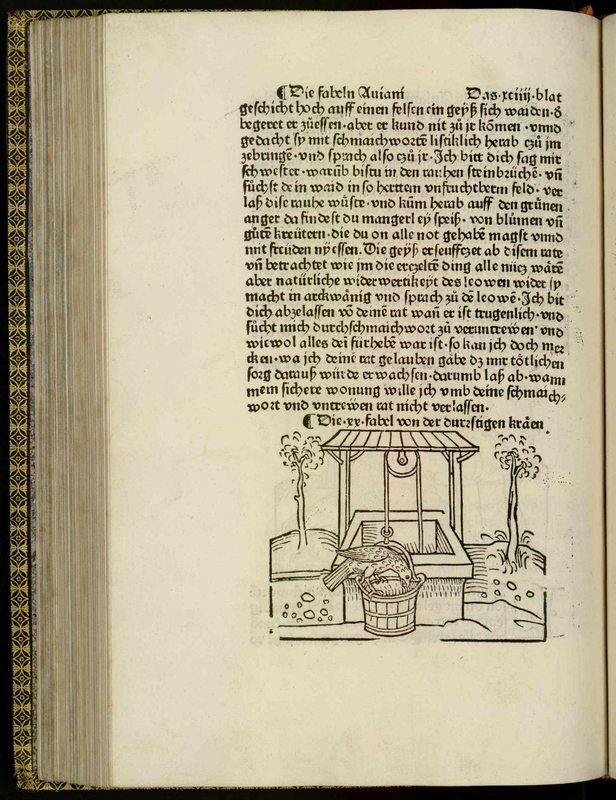 ¶ Die fabeln Auiani Das·xciiii·blat
geschicht hoch auff einen felsen ein geyß sich waiden·d̕
begeret er zůessen·aber er kund nit zů jr kōmen·vnnd
gedacht sy mit schmaichwortē listiklich herab czů jm
zebringē·vnd sprach also czů jr·Ich bitt dich sag mir
schwester·warūb bistu in den rauhen steinbrüchē·vñ
sůchst dein waid in so herttem vnfruchtberm feld·ver
laß dise rauhe wůste·vnd kūm herab auff den grůnen
anger da findest du mangerley speiß·von blůmen vñ
gůtē kreütern·die du on alle not gehabē magst vnnd
mit freüden nyessen·Die geyß erseufftzet ab disem rate
vñ betrachtet wie jm die erczeltē ding alle nücz wärē
aber natürliche widerwertikeyt des leowen wider sy
macht in arckwånig vnd sprach zů dē leowē·Ich bit
dich abzelassen vō deinē rat wañ er ist trugenlich·vnd
sůcht mich durch schmaichwort zů veruntrewen·vnd
wiewol alles dein fürhebē war ist·so kan jch doch mer
cken·wa jch deinē rat gelauben gäbe dz mir tötlichen
sorg darauß würde erwachsen·darumb laß ab·wann
mein sichere wonung wille jch vmb deine schmaich⸗
wort vnd vntrewen rat nicht verlassen·
¶ Die·xx·fabel von der durstigen kräen